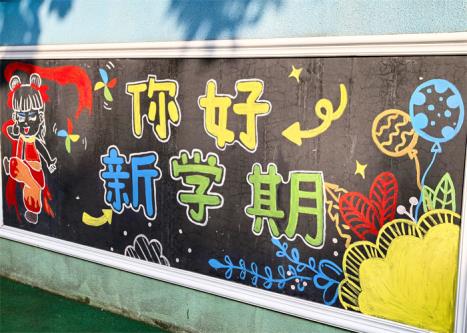 你好
新学期